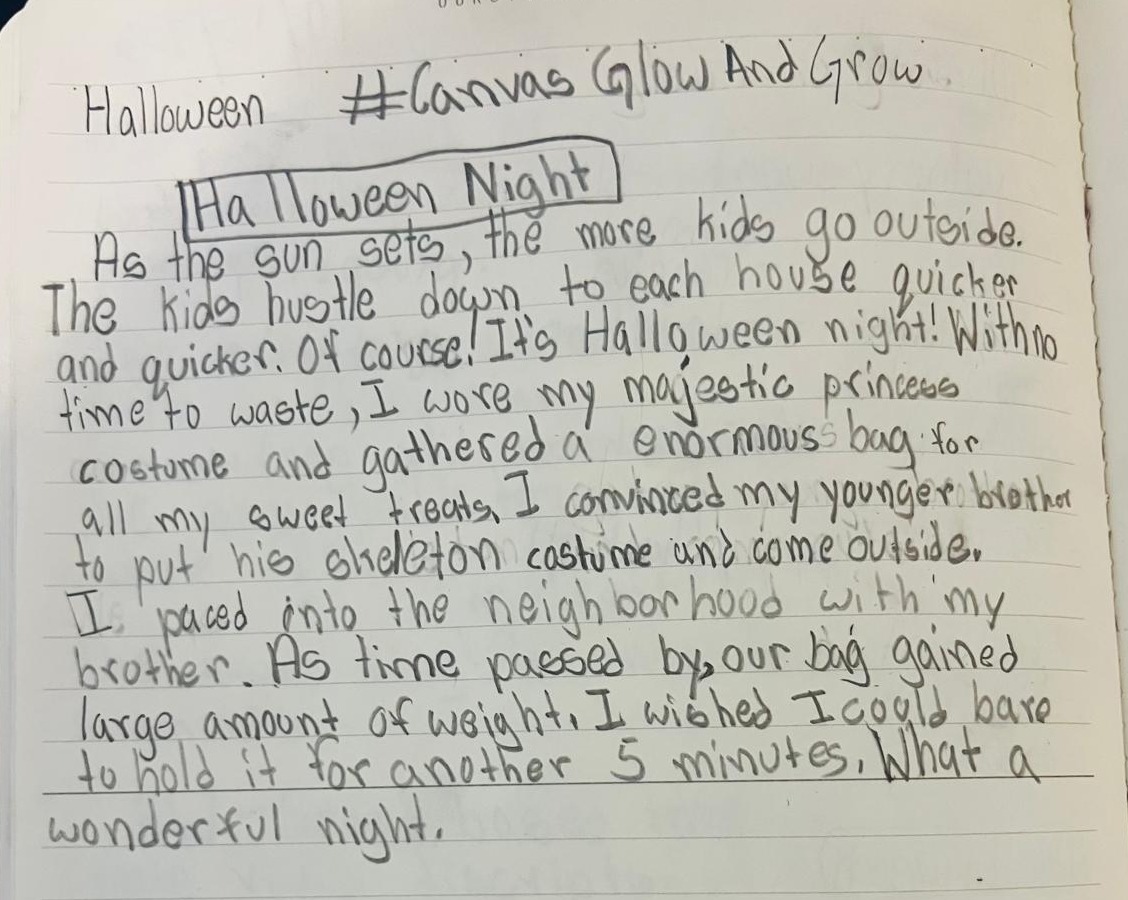 Halloween #Canvas Glow And Grow
Halloween Night
As the sun sets, the more kids go outside.
The kids hustle down to each house quicker
and quicker. Of course! It's Halloween night! With no
time to waste, I wore my majestic princess
costume and gathered a enormous bag for
all my sweet treats. I convinced my younger brother
to put his skeleton costume and come outside.
I paced into the neighborhood with my
brother. As time passed by, our bag gained
large amount of weight. I wished I could bare
to hold it for another 5 minutes. What a
wonderful night.